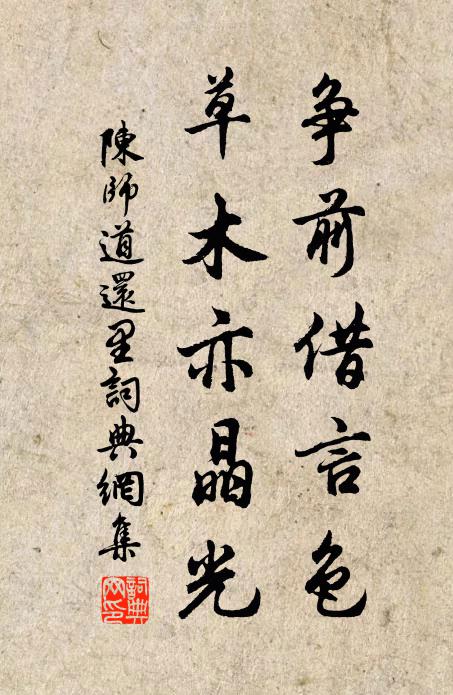 争前借言色
草木亦晶光
陳師道還里詞典網集
詞典網印